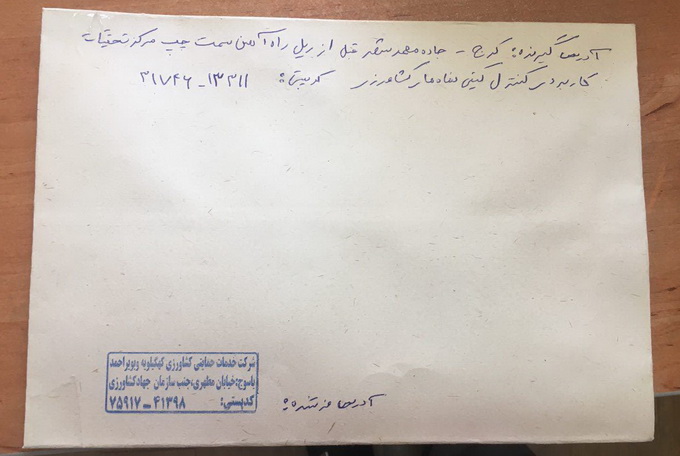 آدرس گیرنده: کرج - جاده مهدشهر قبل از ریل راه آهن سمت چپ مرکز تحقیات
کاربردی کنترل کیفی نهاده‌های کشاورزی کدپستی: ۱۳۳۱۱-۳۱۷۴۶
شرکت خدمات حمایتی کشاورزی کهگیلویه وبویراحمد
یاسوج:خیابان مطهری،جنب سازمان جهادکشاورزی
کدپستی: ۴۱۳۹۸-۷۵۹۱۷
آدرس فرستنده: